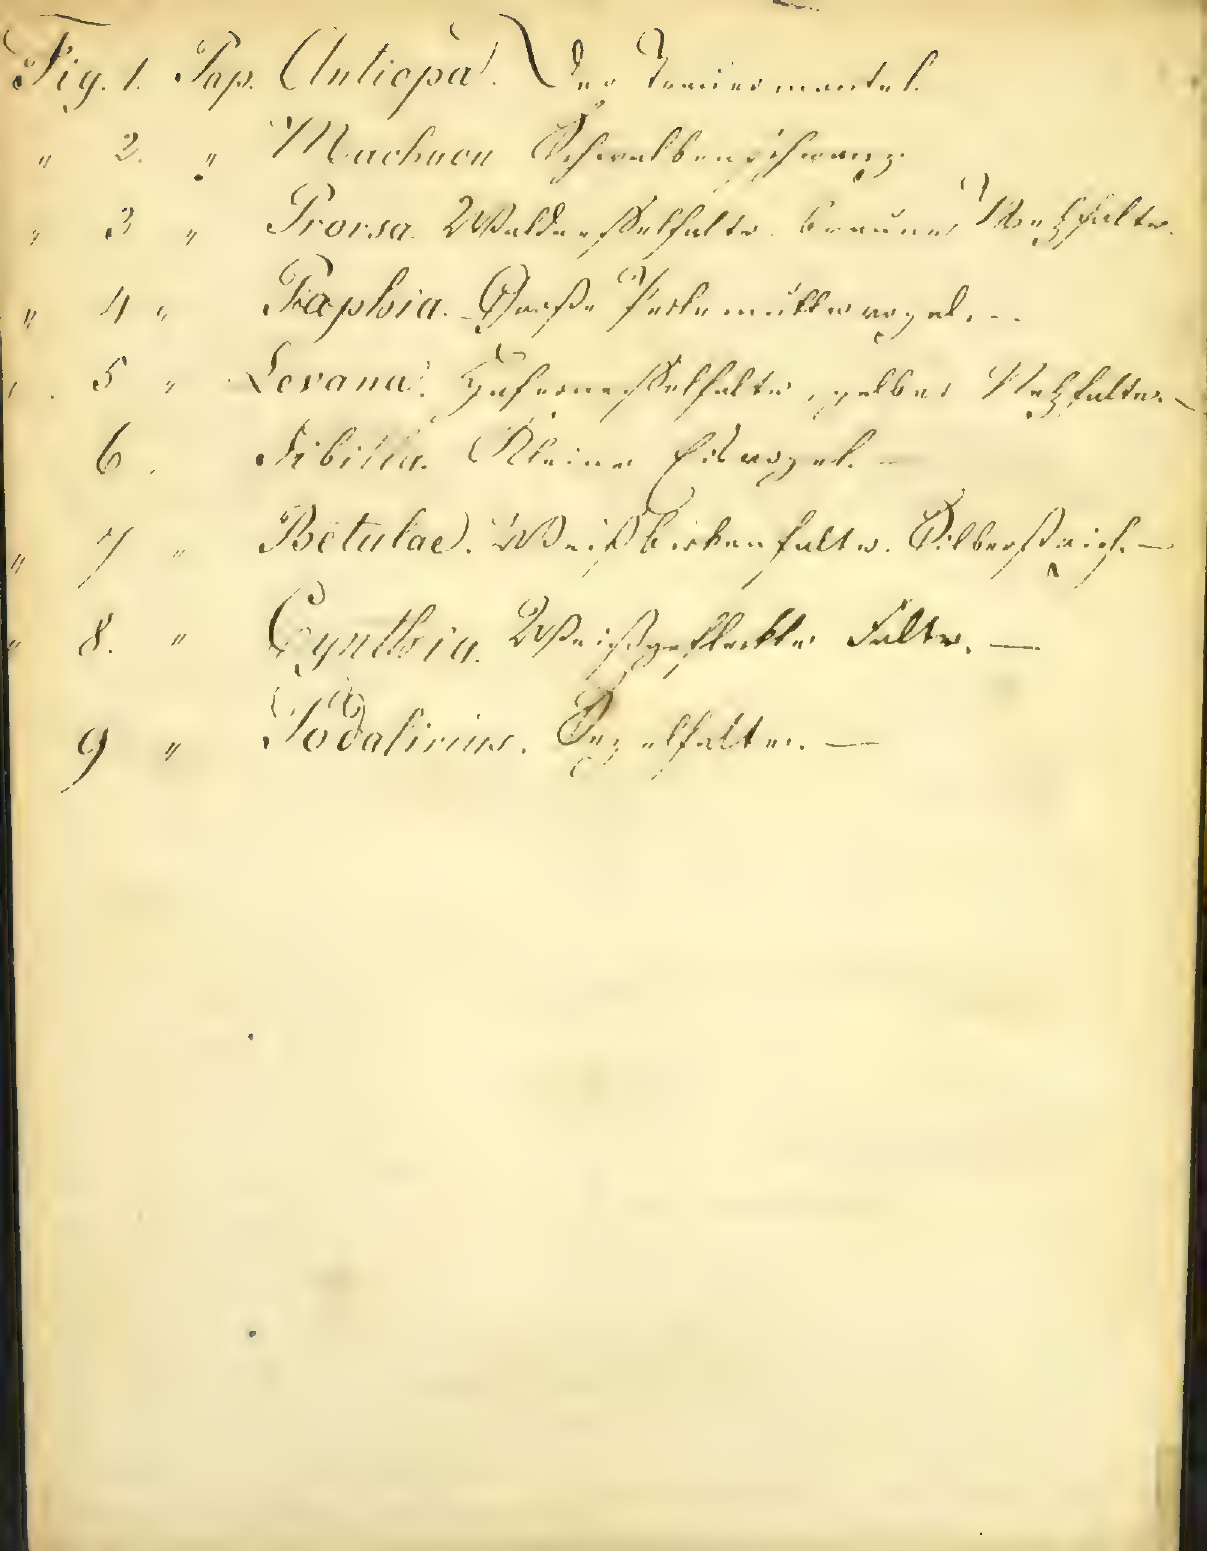 Fig. 1. Pap. Antiopa. Der Trauermantel.
" 2. " Machaon Schwalbenschwanz.
" 3 " Prorsa. Waldnesselfalter. brauner Netzfalter.
" 4 " Paphia. Große Perlemuttervogel. –
" 5 " Levana. Hafernesselfalter, gelber Netzfalter –
6. Sibilla. Kleiner Eisvogel. –
" 7 " Betulae. Weißbirkenfalter. Silberstrich. –
" 8. " Cynthia. Weißgefleckter Falter. –
9 " Podalirius. Segelfalter. –